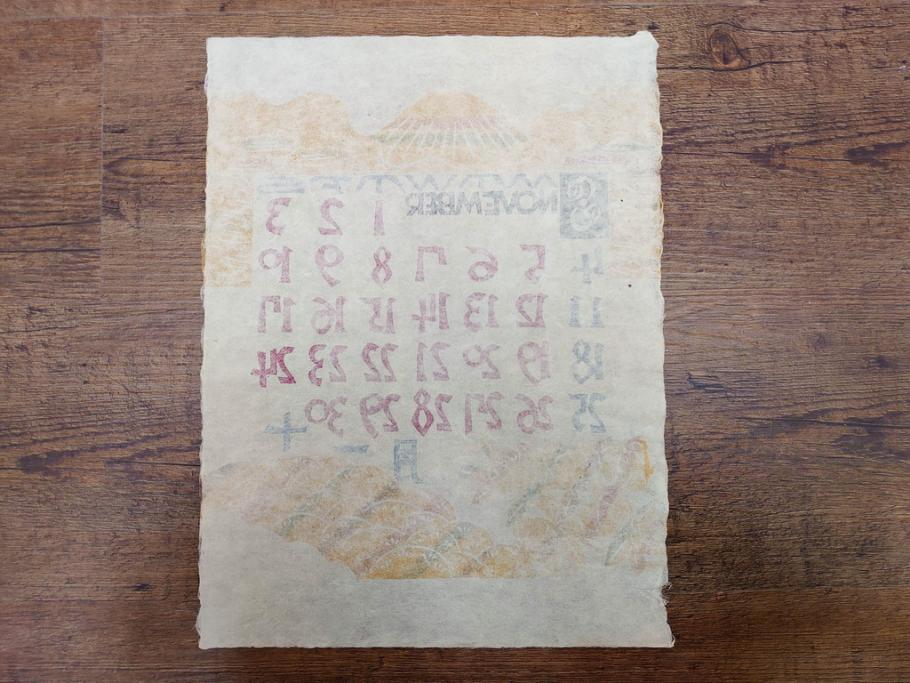 NOVEMBER 1 2 3
4 5 6 7 8 9 10
11 12 13 14 15 16 17
18 19 20 21 22 23 24
25 26 27 28 29 30
十一月